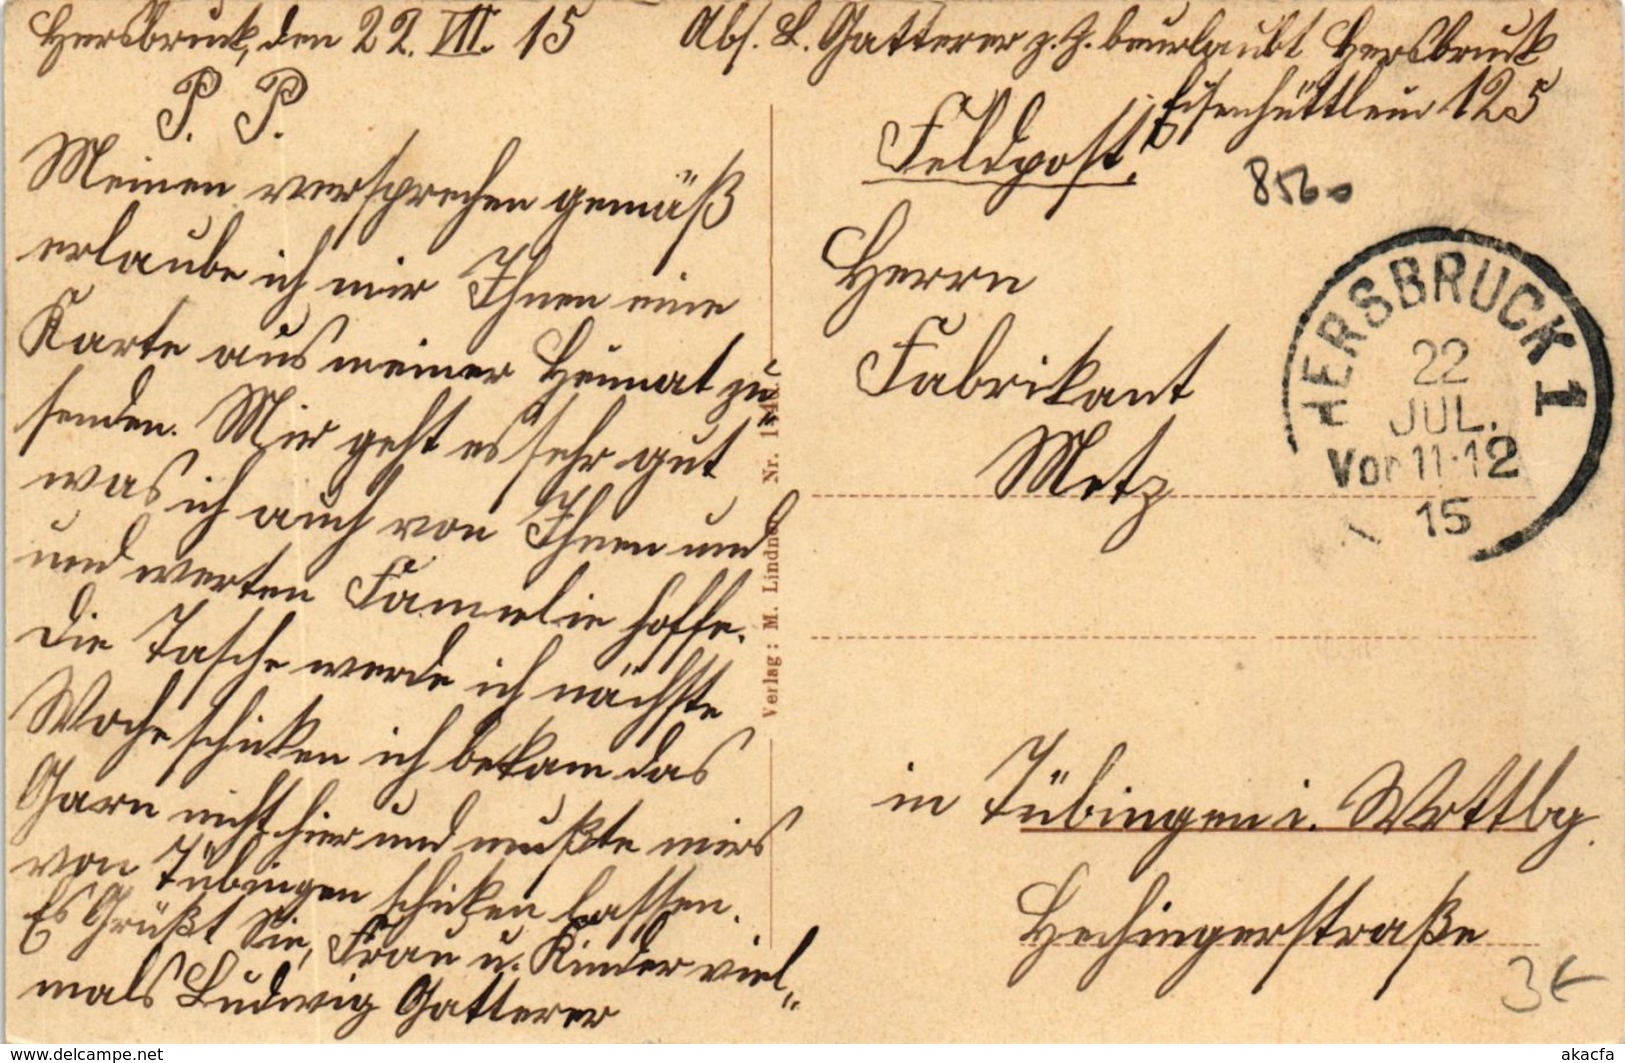 Hersbruck, den 22. VII. 15
P. P.
Meinen versprechen gemäß
erlaube ich mir Ihnen eine
Karte aus meiner Heimat zu
senden. Mir geht es sehr gut
was ich auch von Ihnen und
und werten Familie hoffe.
Die Tasche werde ich nächste
Woche schicken ich bekam das
Garn nicht hier und mußte mirs
von Tübingen schicken lassen.
Es Grüßt Sie, Frau u. Kinder viel-
mals Ludwig Gatterer
Abs. L. Gatterer z. Z. beurlaubt Hersbruck
Eisenhüttlein 125
Feldpost.
8500
Herrn
Fabrikant
Metz
in Tübingen i. Wrttbg.
Hechingerstraße
3€
HERSBRUCK 1
22
JUL.
Vor 11-12
15
Verlag: M. Lindner
Nr.
akpool.co.uk